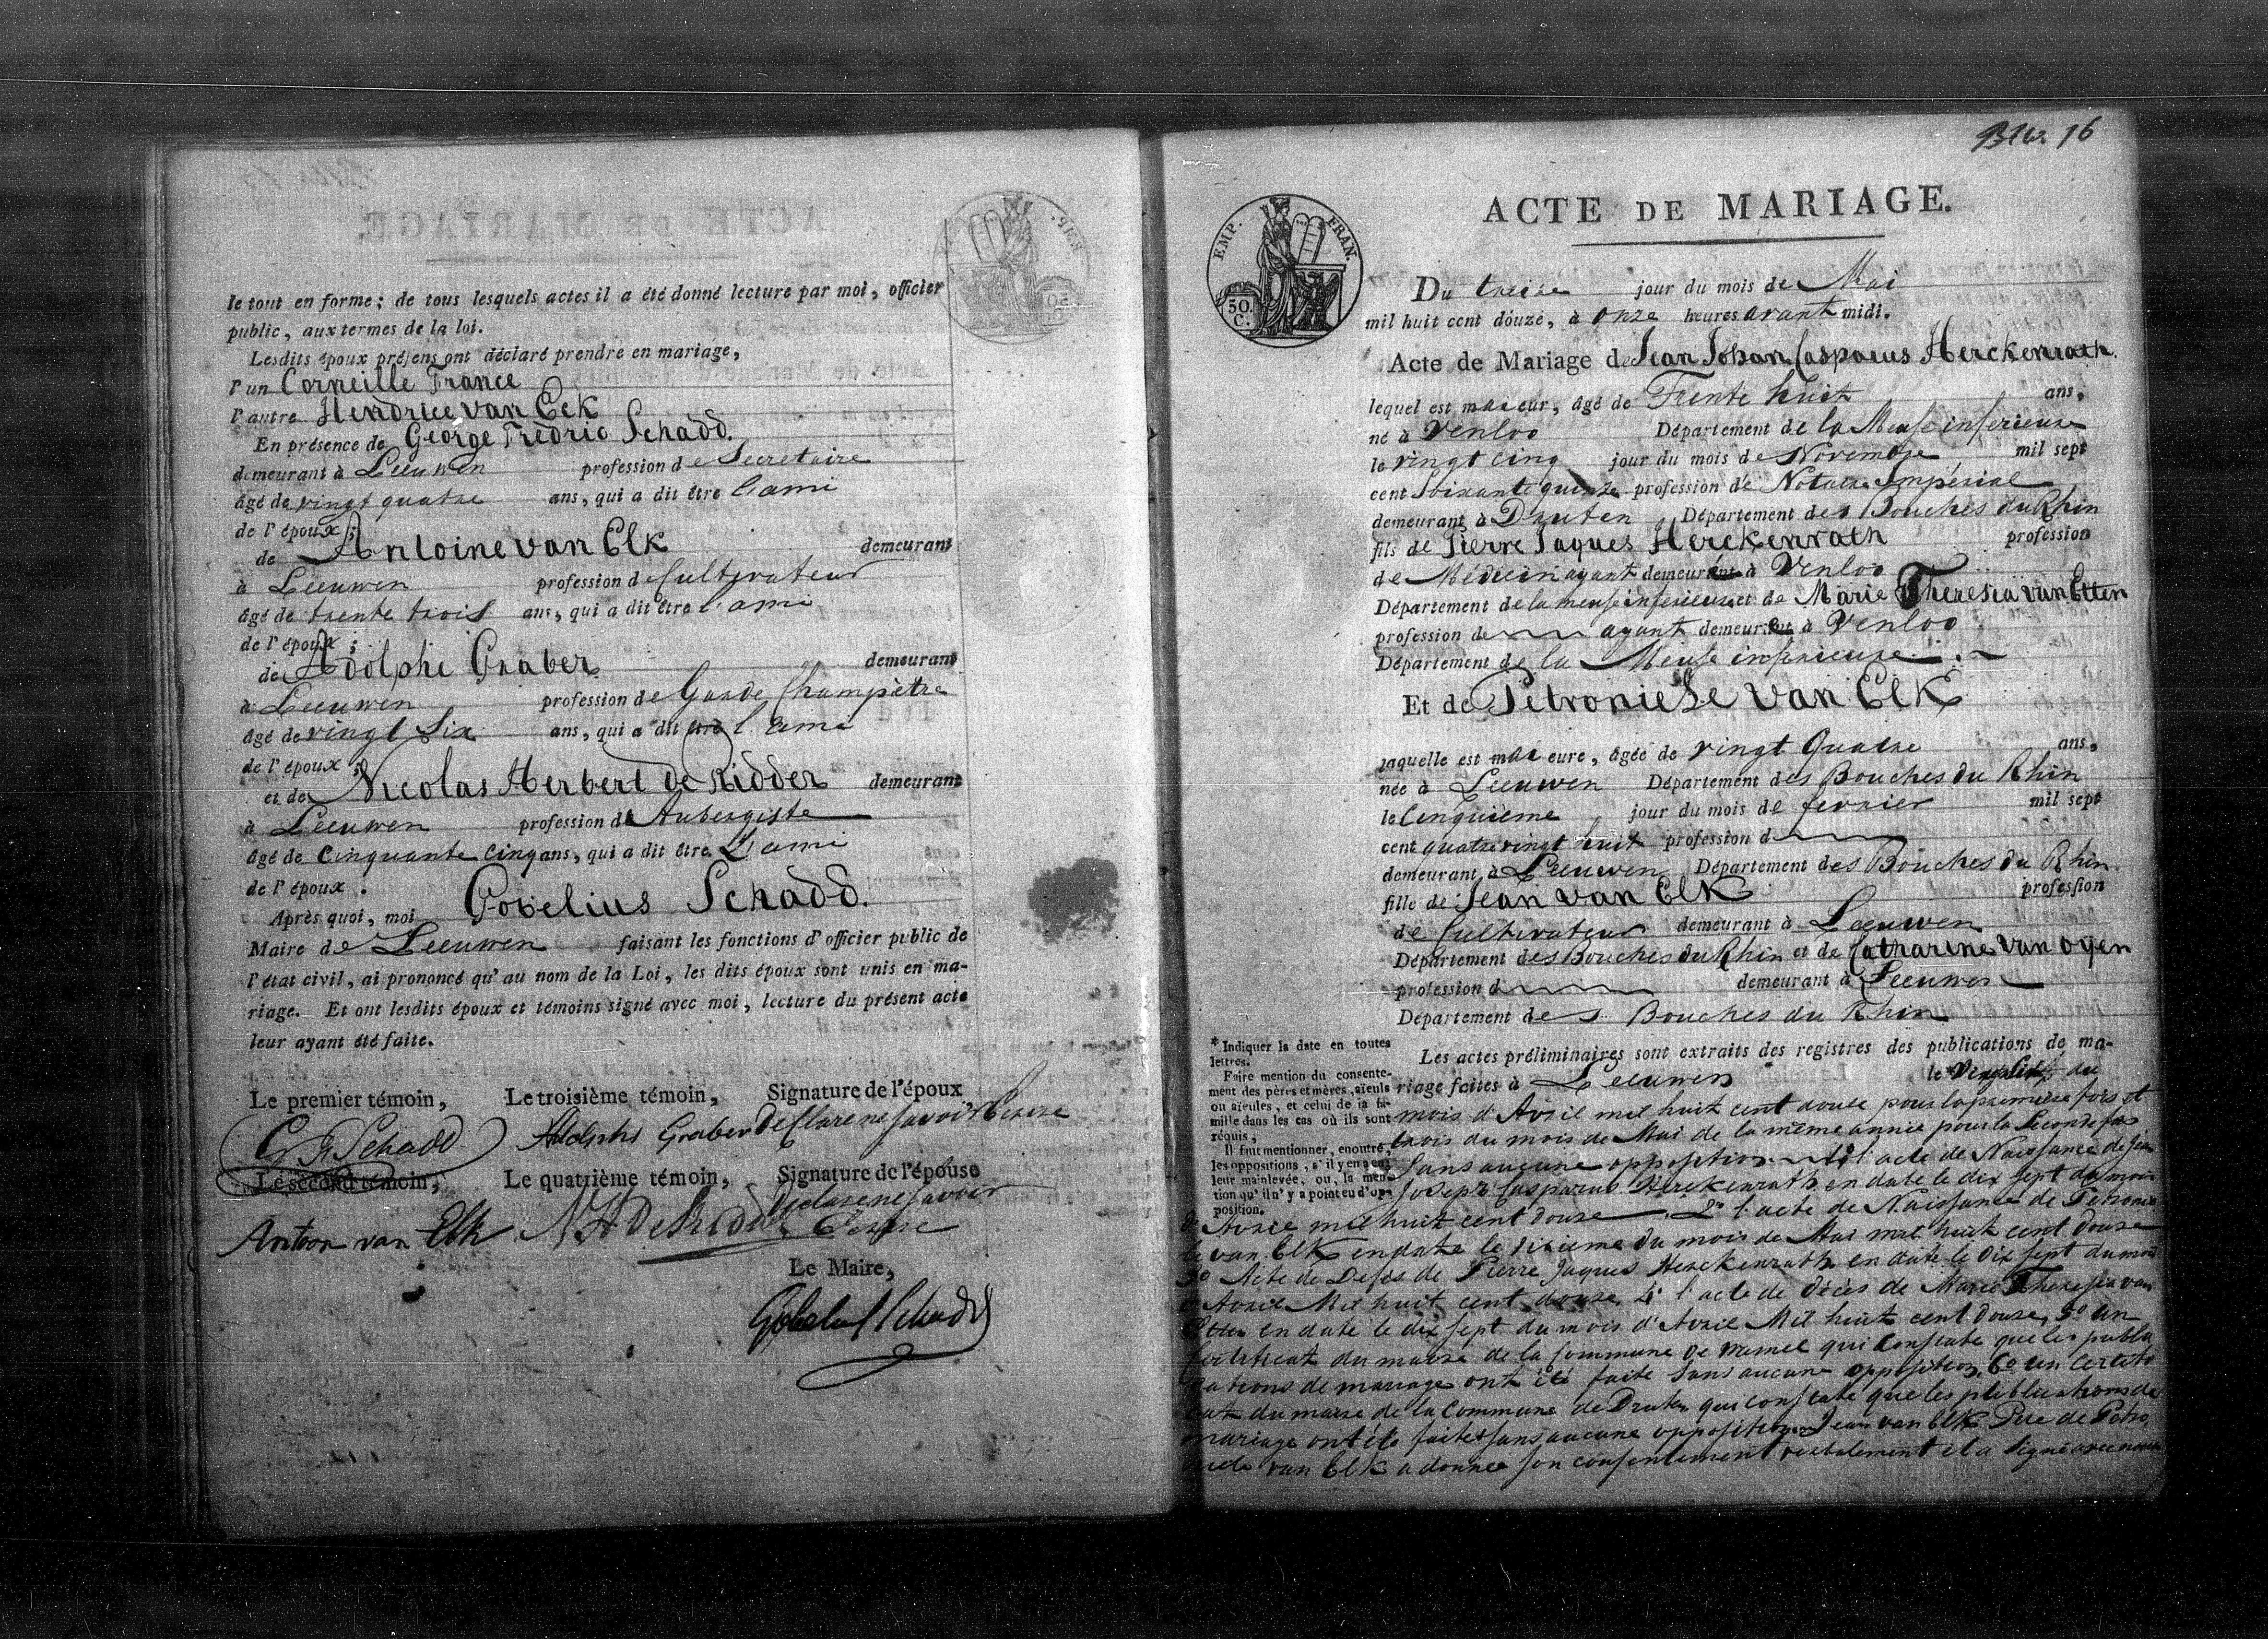 le tout en forme; de tous lesquels actes il a été donné lecture par moi, officier
public, aux termes de la loi.
Lesdits époux présens ont déclaré prendre en mariage,
l'un Corneille France
l'autre Hendrice van Eck
En présence de George Fredric Schadd.
demeurant à Leeuwen profession de Secretaire
âgé de vingt quatre ans, qui a dit être l'ami
de l'époux;
de Antoine van Elk demeurant
à Leeuwen profession de Cultivateur
âgé de trente trois ans, qui a dit être l'ami
de l'époux;
de Adolphe Graber demeurant
à Leeuwen profession de Garde Champètre
âgé de vingt Six ans, qui a dit être l'ami
de l'époux;
et de Nicolas Herbert de Ridder demeurant
à Leeuwen profession de Aubergiste
âgé de Cinquante Cinq ans, qui a dit être L'ami
de l'époux.
Après quoi, moi Gobelius Schadd.
Maire de Leeuwen faisant les fonctions d'officier public de
l'état civil, ai prononcé qu'au nom de la Loi, les dits époux sont unis en ma-
riage. Et ont lesdits époux et témoins signé avec moi, lecture du présent acte
leur ayant été faite.
Le premier témoin, Le troisième témoin, Signature de l'époux
G F Schadd Adolphe Graber Declare ne savoir
Le second témoin, Le quatrième témoin, Signature de l'épouse
declare ne savoir
Antoon van Elk N H De Ridder
Le Maire,
Gobelius Schadd
Blw. 16
ACTE DE MARIAGE.
EMP. FRAN.
50.
C.
Du treize jour du mois de Mai
mil huit cent douze, à onze heures avant midi.
Acte de Mariage de Jean Johan Casparus Herckenrath.
lequel est majeur, âgé de Trente huit ans,
né à Venloo Département de la Meuse inferieure
le vingt cinq jour du mois de Novembre mil sept
cent soixante quinze profession de Notaire Impérial
demeurant à Druten Département des Bouches du Rhin
fils de Pierre Jaques Herckenrath profession
de Médecin ayant demeuré à Venloo
Département de la meuse inferieure et de Marie Theresia van Etten
profession de ayant demeuré à Venloo
Département de la Meuse inferieure.
Et de Petronielle van Elk
laquelle est majeure, âgée de vingt Quatre ans,
née à Leeuwen Département des Bouches du Rhin
le Cinquième jour du mois de fevrier mil sept
cent quatre vingt huit profession d
demeurant à Leeuwen Département des Bouches du Rhin.
fille de Jean van Elk profession
de Cultivateur demeurant à Leeuwen
Département des Bouches du Rhin et de Catharine van oyen
profession d demeurant à Leeuwen
Département des Bouches du Rhin
* Indiquer la date en toutes
lettres.
Faire mention du consente-
ment des pères et mères, aïeuls
ou aïeules, et celui de la fa-
mille dans les cas où ils sont
réquis,
Il faut mentionner, enoutre,
les oppositions, s'il y en a eu,
leur mainlevée, ou, la men-
tion qu'il n'y a point eu d'op-
position.
Les actes préliminaires sont extraits des registres des publications de ma-
riage faites à Leeuwen le du
mois d'Avril mil huit cent douse pour la premiere fois et
trois du mois de Mai de la même année pour la Seconde fois
Sans aucune opposition 1° l'acte de Naissance de Jean
Joseph Casparus Herckenrath en date le dix sept du mois
d'Avril mil huit cent douse 2° l'acte de Naissance de Petroniel
le van Elk en date le du mois de Mai mil huit cent douse
3° Acte de Decès de Pierre Jaques Herckenrath en date le dix sept du mois
d'Avril Mil huit cent douse 4° l'acte de décès de Marie Theresia van
Etten en date le dix sept du mois d'Avril Mil huit cent douse, 5° un
Certificat du maire de la Commune de Wamel qui constate que les publi
cations de mariage ont été faite sans aucune opposition, 6° un Certifi
cat du maire de la Commune de Druten qui constate que les publications de
mariage ont été faites sans aucune opposition Jean van Elk Pere de Petro
nielle van Elk a donnee son consentement verbalement et a signé avec nous